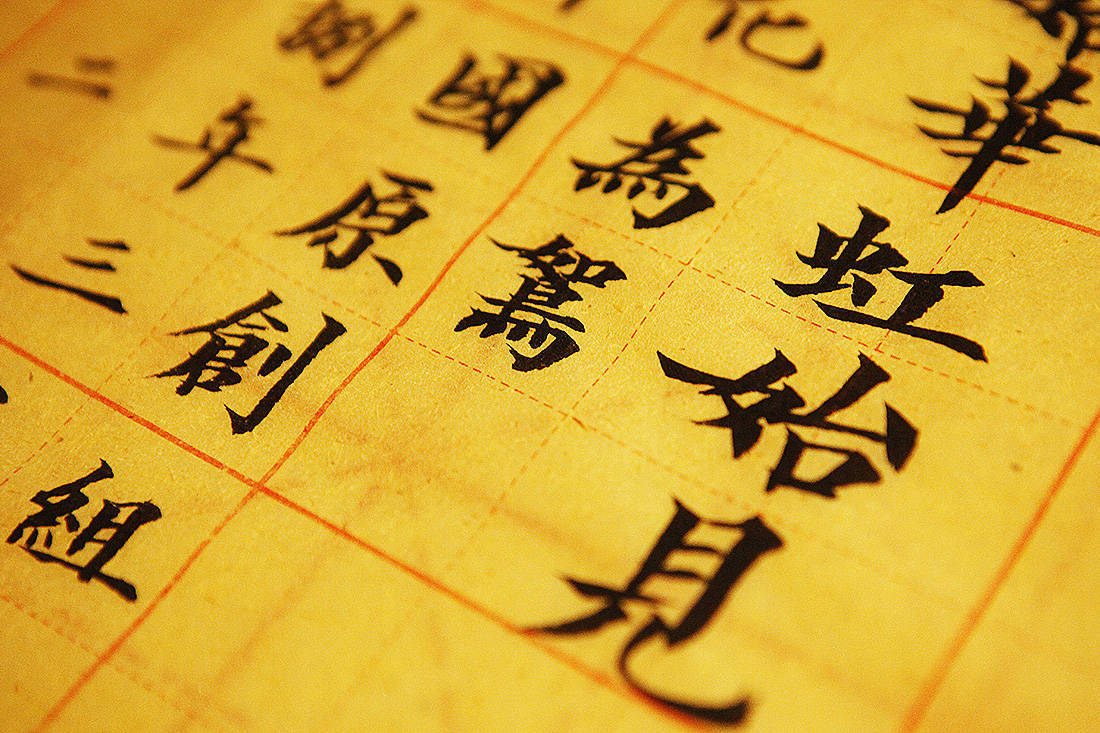 華虹始見
化為鴽
國原創組
捌年三
二